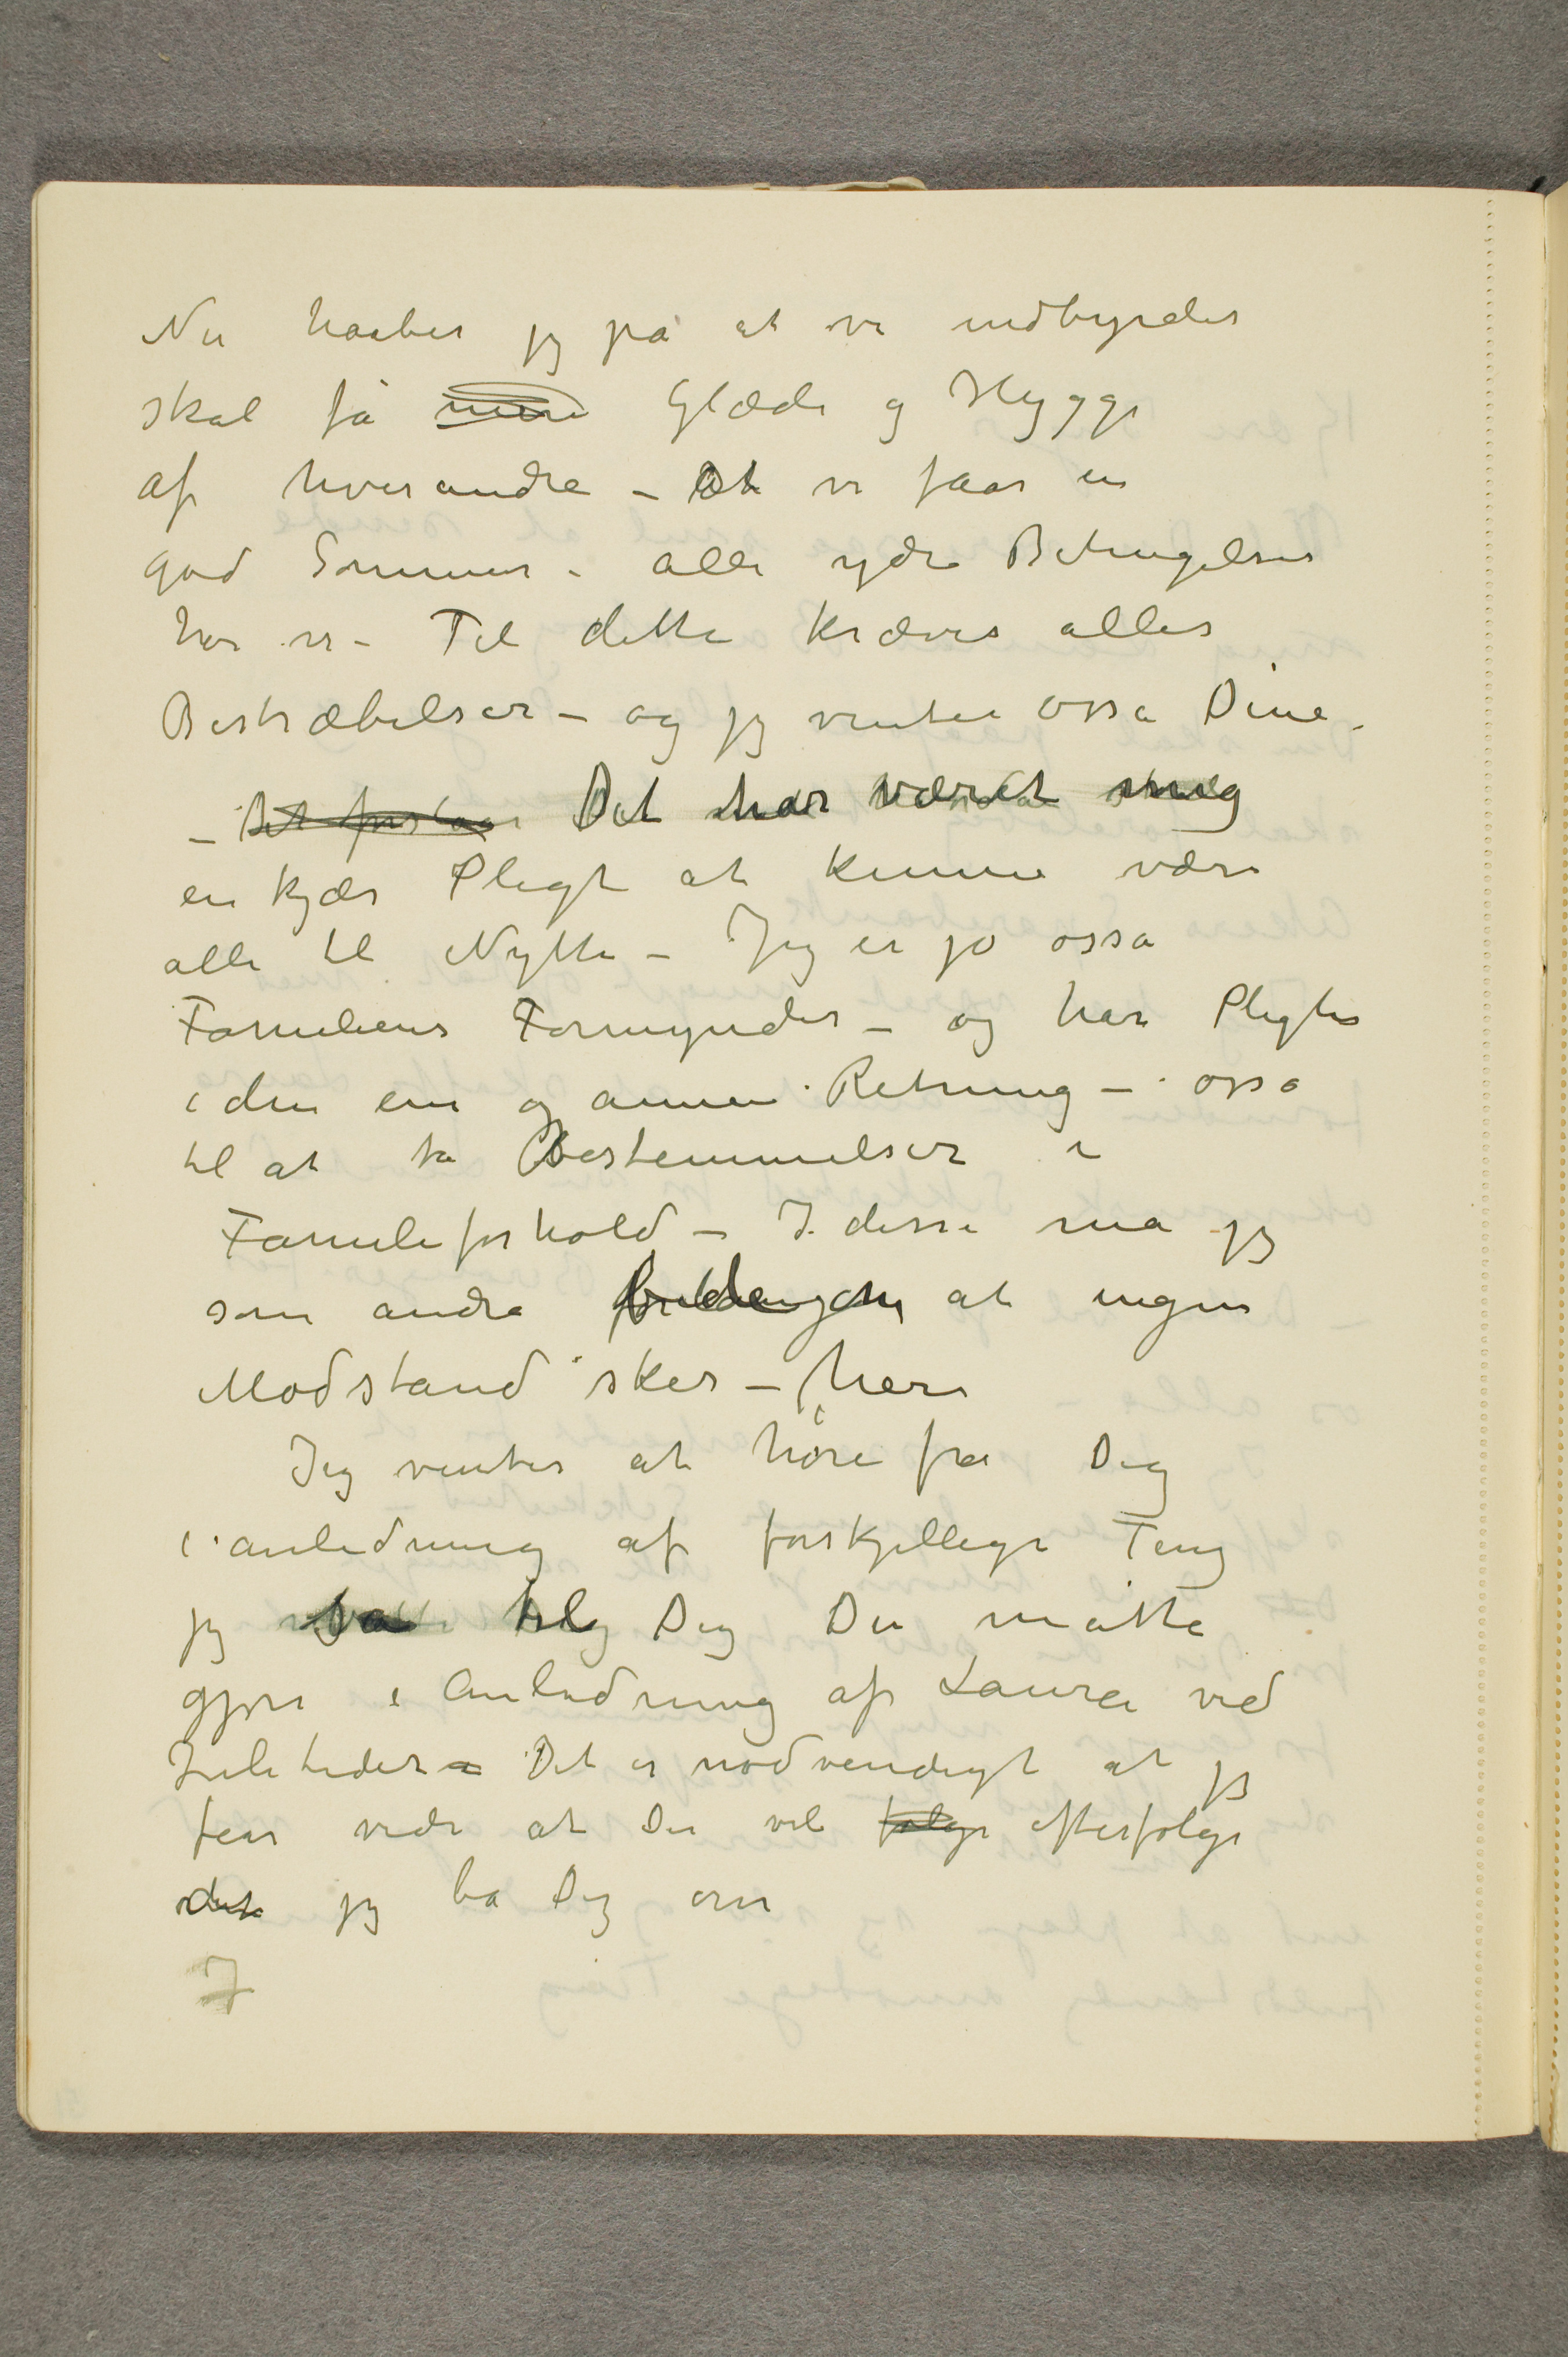 Nu haaber jeg på at vi indbyrdes
skal få mere Glæde og Hygge
af hverandre – At vi faar en
god Sommer – alle ydre Betingelser
har vi – Til dette kræves alles
Bestræbelser – og jeg venter osså Dine –
– Det forstaar Det har været mig
en kjær Pligt at kunne være
alle til Nytte – Jeg er jo osså
Familiens Formynder – og har Pligter
i den ene og annen Retning – osså
til at ta Bestemmelser i
Familieforhold – I disse må jeg
som andre at ingen
Modstand sker – her
Jeg venter at høre fra Dig
i anledning af forskjellige Ting
jeg sa til Dig Du måtte
gjøre i Anledning af Laura ved
Juletider – Det er nødvendigt at jeg
faar vide at Du vil følge efterfølge
det jeg ba Dig om
J